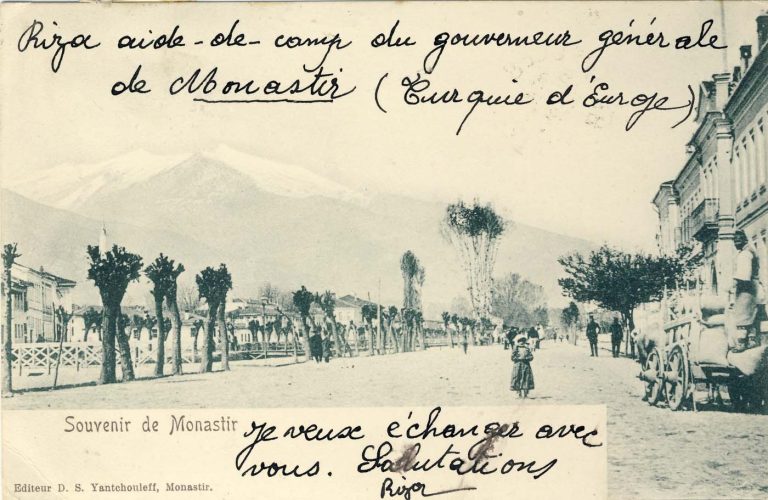 Riza aide-de-camp du gouverneur générale
de Monastir (Turquie d'Europe)
Souvenir de Monastir
je veux échanger avec
vous. Salutations
Riza
Editeur D. S. Yantchouleff, Monastir.